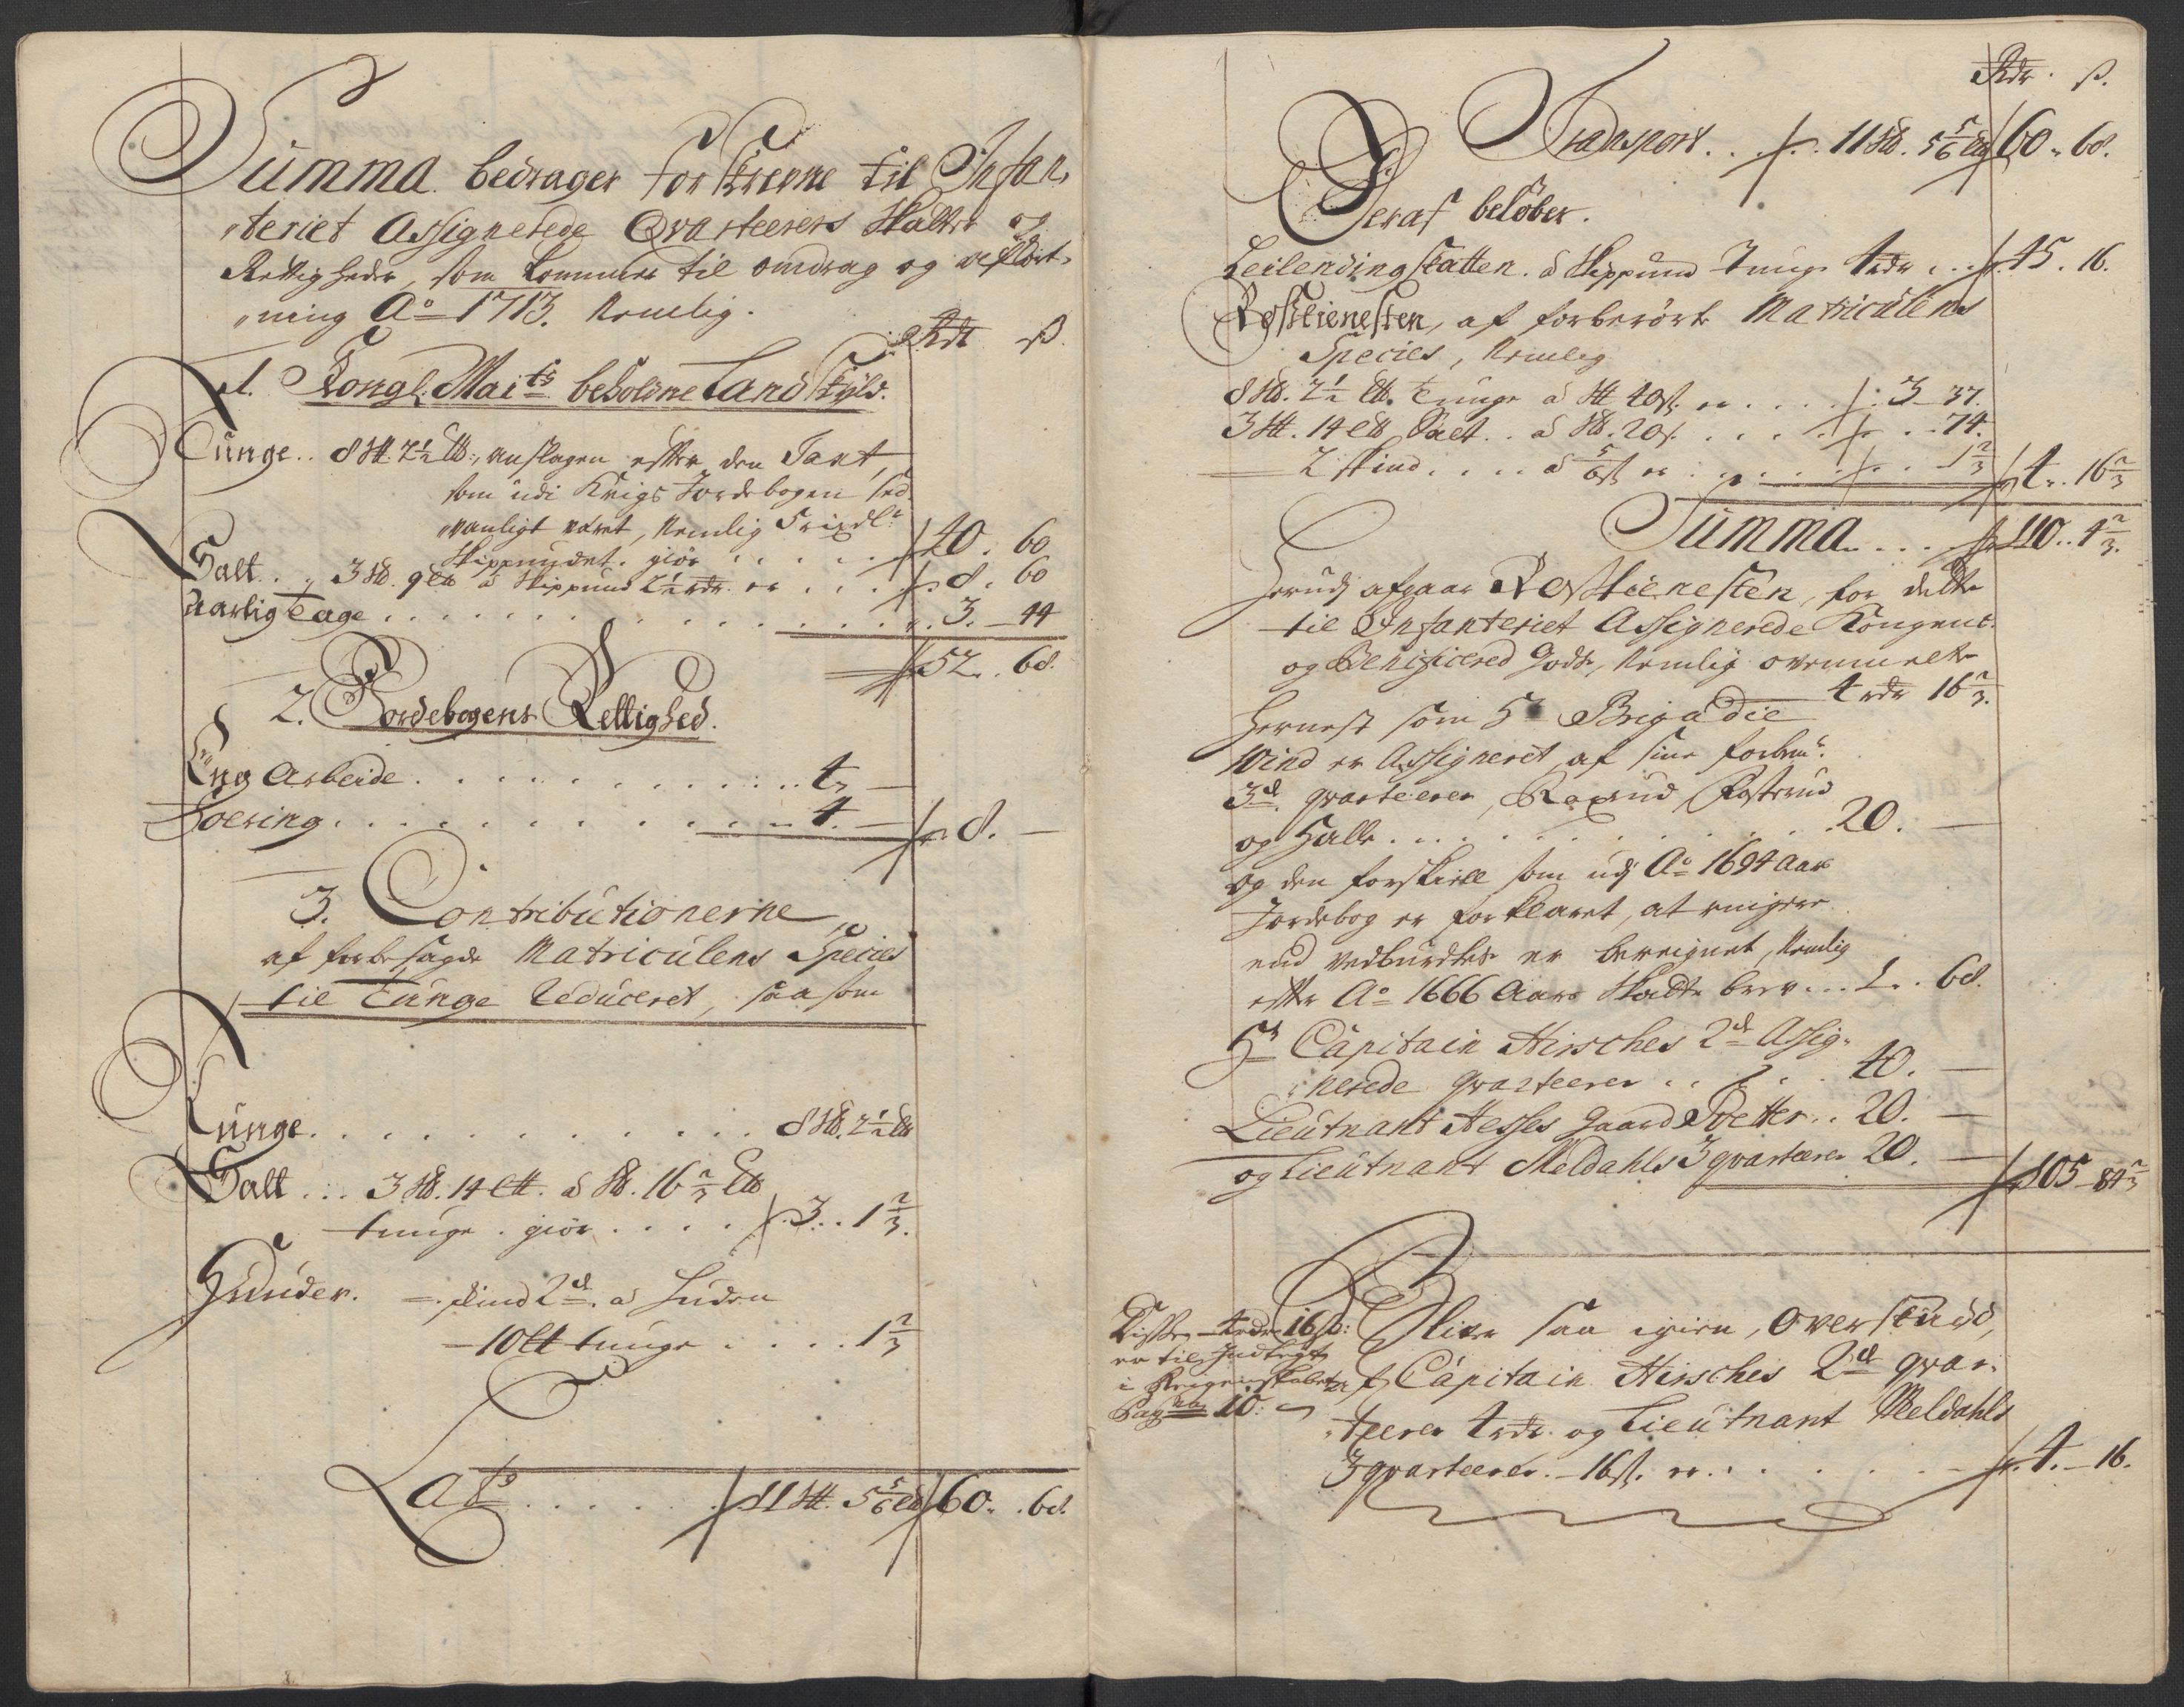 Summa bedrager forskrevne til Infan¸
¸teriet Assignerede Qvarteerers Skatter og
Rettigheder, som kommer til omdrag og afkort¸
¸ning Ao 1713. Nemlig.
Rdr ß.
1. Kongl. Maits beholdne Landskyld.
Tunge.. 8 Sk. 2½ Lb., anslagen efter den Taxt,
som udi Krigs Jordebogen sed¸
¸vanligt været, Nemlig 5 rixdlr
Skippundet. giör . . . . 40. 60
Salt... 3 Sk. 9 Lb à Skippund 2½ rdr. er . . . 8. 60
Aarlig Tage . . . . . . . 3. 44
52.. 68.
2. Jordebogens Rettighed.
Eng Arbeide . . . . . . . 4. —
Foering . . . . . . . 4. — 8. —
3. Contributionerne
af forbesagde Matriculens Species
til Tunge Reduceret, saasom
Tunge . . . . . . . 8 Sk. 2½ Lb
Salt ... 3 Sk. 14 Lb. à Sk. 16⅔ Lb
tunge. giör . . . . 3.. 1⅔.
Huuder. — Skind 2de. à Huden
— 10 Lb tunge . . . . 1⅔
Lats . . . . . 11 Sk. 5⅚ Lb 60.. 68.
Rdr. ß.
Transport . . . 11 Sk. 5⅚ Lb 60.. 68.
Heraf belöber.
Leilendingskatten. à Skippund Tunge 4 rdr . . . 45. 16.
Rostienesten, af forberörte Matriculens
Species, Nemlig
8 Sk. 2½ Lb. Tunge à Sk 40 ß. er . . . . 3 — 37.
3 Sk. 14 Lb Salt.. à Sk. 20 ß. . . . . . . 74.
2 Skind . . . . à ⅚ ß er . . . . . 1⅔ 4.. 16⅔
Summa . . . . 110.. 4⅔.
Herudj afgaar Rostienesten, for dette
til Infanteriet Assignerede Kongens
og Beneficered Gods, Nemlig ovenmelte
4 rdr 16⅔.
Hernest som Hr Brigadie
Wind er Assigneret, af sine forbemte.
3de. qvarteerer,
og Halle . . . . . . . . . 20. —
og den forskiell som udj Ao 1694 Aars
Jordebog er forklaret, at ringere
end vedburdte er bereignet, Nemlig
efter Ao 1666 Aars Skatte brev . . . 1.. 68.
Hr Capitain Hirsches 2de Assig¸
¸nerede qvarteerer . . . . 40. —
Lieutnant Hesses Gaard Sletter .. 20. —
og Lieutnant Meldahls 3 qvarteerer 20. — 105 — 84⅔
Disse — 4 rdr 16 ß:
er til Indtegt
i Reigenskabet
Pag: 10:
Bliver saa igien, Overskud,
af Capitain Hirsches 2de qvar¸
¸teerer 4 rdr. og Lieutnant Meldahls
3 qvarteerer. — 16 ß. er . . . . . 4. — 16.